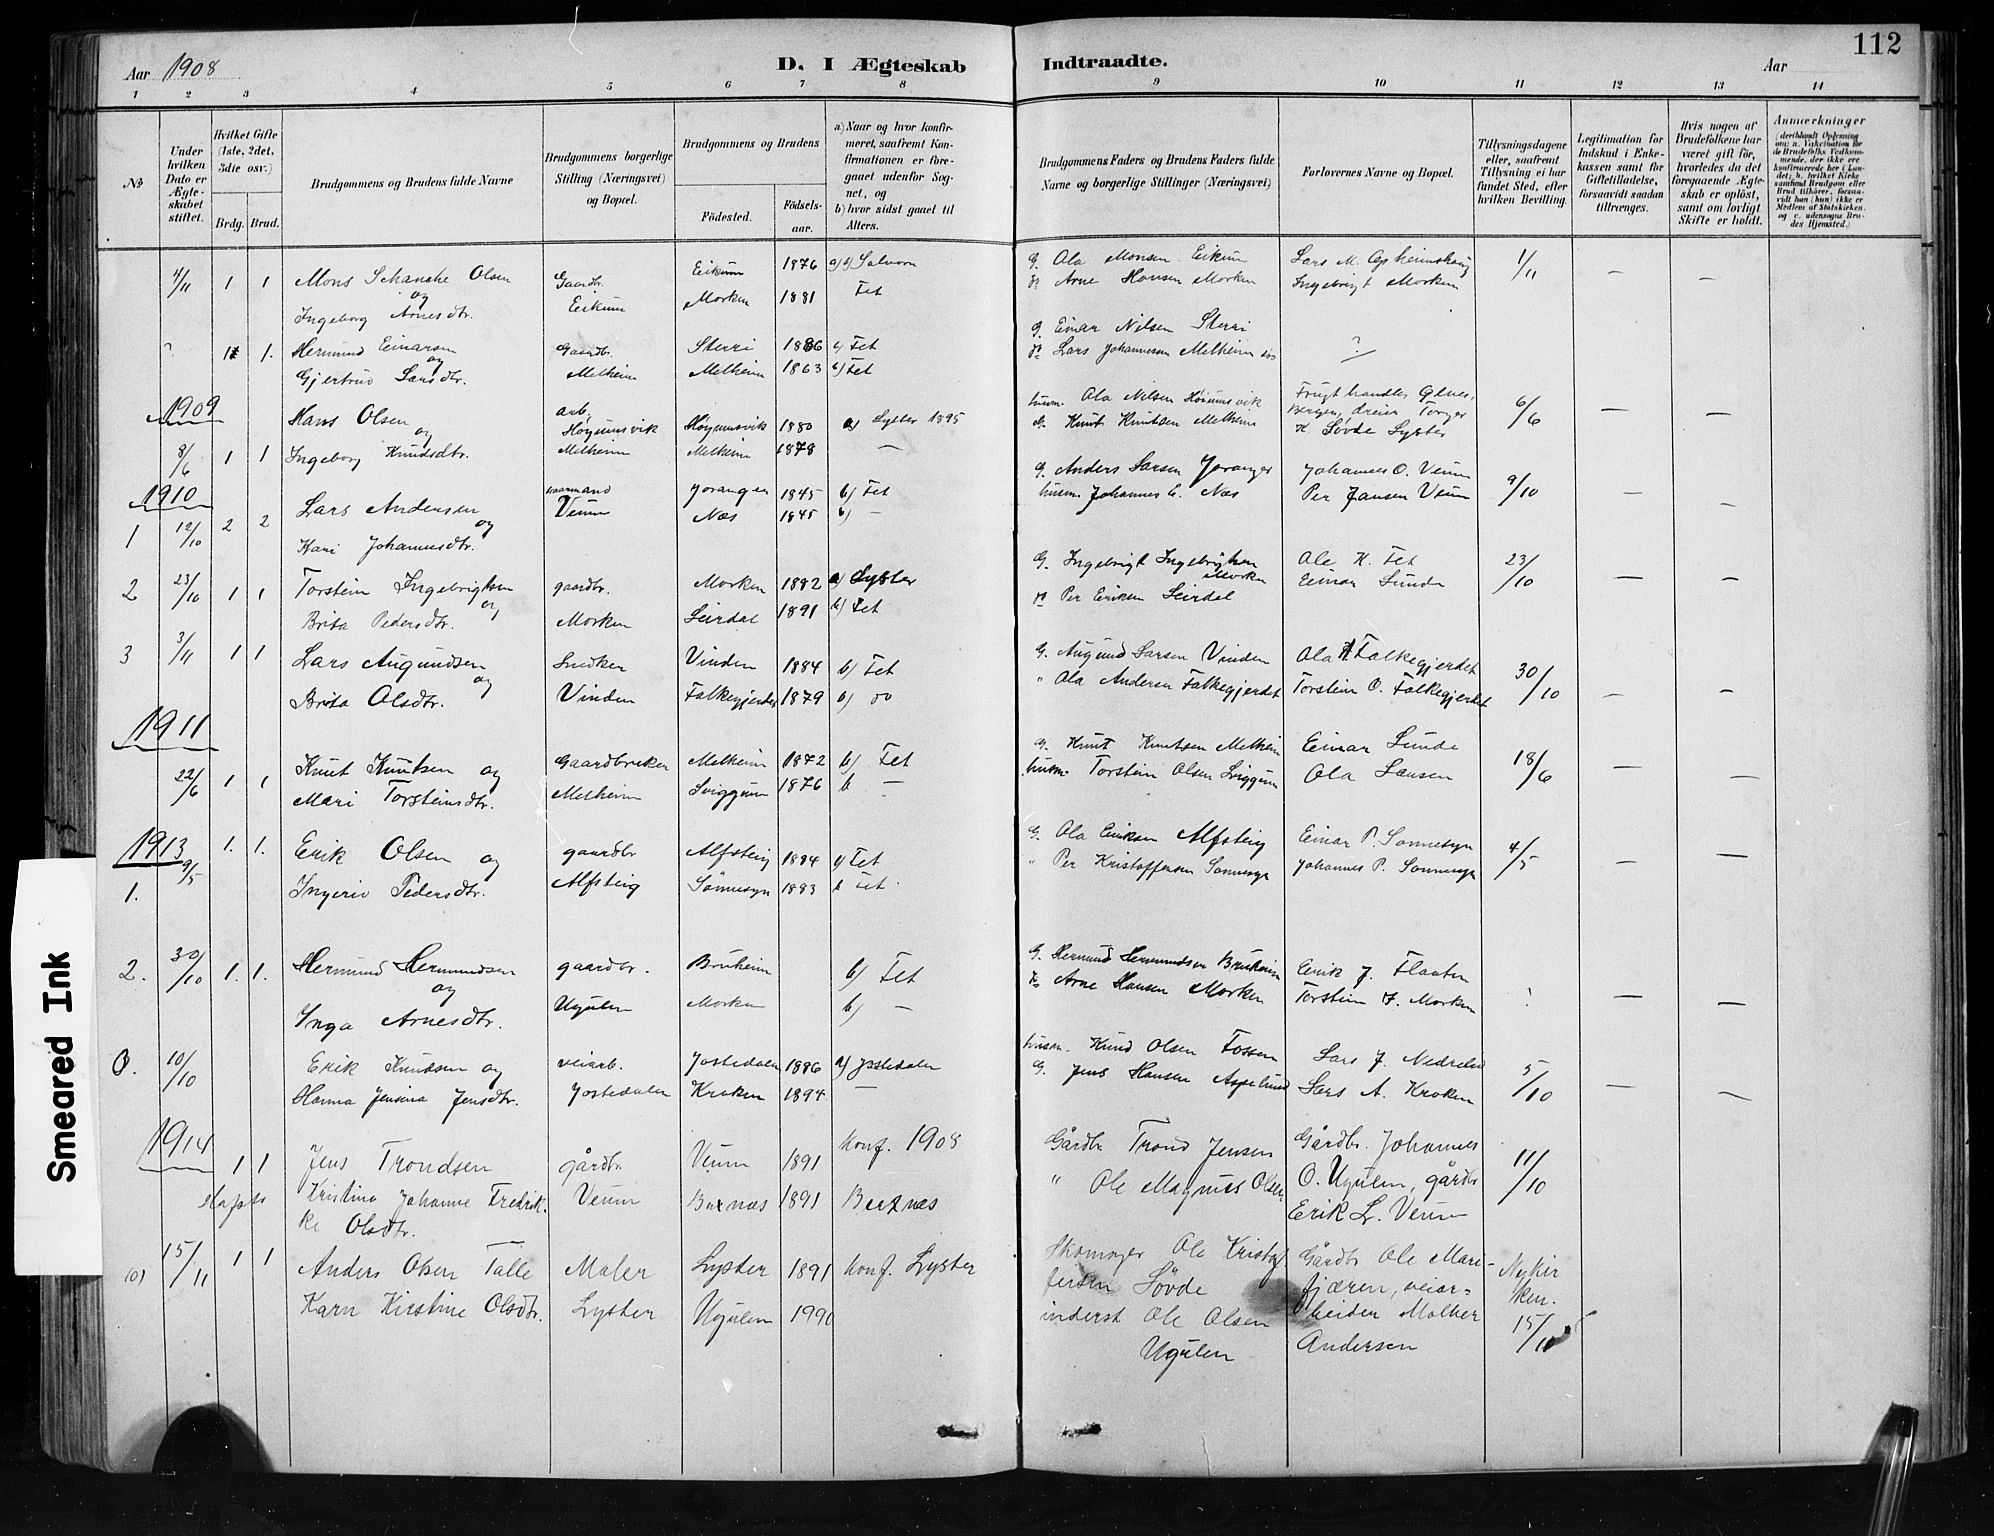 112
Aar 1908
D. I Ægteskab
Indtraadte.
Aar
1 2 3 4 5 6 7 8 9 10 11 12 13 14
No
Under hvilken Dato er Ægteskabet stiftet.
Hvilket Gifte (1ste, 2det, 3die osv.)
Brdg. Brud.
Brudgommens og Brudens fulde Navne
Brudgommens borgerlige Stilling (Næringsvei) og Bopæl.
Brudgommens og Brudens
Fødested.
Fødselsaar.
a) Naar og hvor konfirmeret, saafremt Konfirmationen er foregaaet udenfor Sognet, og
b) hvor sidst gaaet til Alters.
Brudgommens Faders og Brudens Faders fulde Navne og borgerlige Stillinger (Næringsvei)
Forlovernes Navne og Bopæl.
Tillysningsdagene eller, saafremt Tillysning ei har fundet Sted, efter hvilken Bevilling.
Legitimation for Indskud i Enkekassen samt for Giftetilladelse, forsaavidt saadan tiltrænges.
Hvis nogen af Brudefolkene har været gift før, hvorledes da det foregaaende Ægteskab er opløst, samt om lovligt Skifte er holdt.
Anmærkninger
4/11 1 1 Mons Schanche Olsen Gaardbr. Eikum 1876 a) b) Solvorn G. Ola Monsen Eikum Lars M. Opheimshaug 1/11 – –
og
Ingeborg Arnesdtr. Eikum Morken 1881 Fet Arne Hansen Morken Ingebrigt Morken
? 1 1. Hermund Einarsen Gaardbr. Sterri 1886 b) Fet G. Einar Nilsen Sterri
og
Gjertrud Larsdtr. Melheim Melheim 1863 b) Fet Lars Johannesen Melheim ?
1909
Hans Olsen arb. Høyumsvik Høyumsvik 1880 a) Lyster 1895 husm. Ola Nilsen Høiumsvik Frugthandler
og Bergen, dreier Torger 6/6 – –
8/6 1 1 Ingeborg Knudsdtr. Melheim Melheim 1878 – G. Knut Knutsen Melheim K. Søvde Lyster
1910
1 12/10 2 2 Lars Andersen Veum Joranger 1845 b) Fet G. Anders Larsen Joranger Johannes O. Veum 9/10 – –
og
Kari Johannesdtr. Næs 1845 b) – husm. Johannes E. Næs Per Jansen Veum
2 23/10 1 1 Torstein Ingebrigtsen gaardbr. Morken 1882 a) Lyster G. Ingebrigt Ingebrigtsen Morken Ole K. Fet 23/10 – –
og
Brita Pedersdtr. Morken Leirdal 1891 b) Fet Per Eriksen Leirdal Einar Sunde
3 3/11 1 1 Lars Augundsen Snedker Vinden 1884 b) Fet G. Augund Larsen Vinden Ola A Falkegjerdet 30/10 – –
og
Brita Olsdtr. Vinden Falkegjerdet 1879 b) do " Ola Andersen Falkegjerdet Torstein O. Falkegjerdet
1911
22/6 1 1 Knut Knutsen og Gaardbruker Melheim 1872 b) Fet G. Knut Knutsen Melheim Einar Sunde 18/6 – –
Mari Torsteinsdtr. Melheim Sviggum 1876 b – husm. Torstein Olsen Sviggum Ola Larsen
1913
1. 9/5 1. 1. Erik Olsen og gaardbr Alfsteig 1884 b) Fet G. Ola Eriksen Alfsteig Einar P. Sønnesyn 4/5 – –
Ingerid Pedersdtr. Alfsteig Sønnesyn 1883 b Fet. " Per Kristoffersen Sønnesyn Johannes P. Sønnesyn
2. 30/10 1. 1. Hermund Hermundsen gaardbr. Bruheim b) Fet G. Hermund Hermundsen Bruheim Eirik J. Flaaten ? – –
og
Inga Arnesdtr. Ugulen Morken b) – Arne Hansen Morken Torstein I. Morken
0. 10/10 Erik Knudsen og veiarb. Jostedalen 1886 a) Jostedalen husm. Knud Olsen Fossen Lars J. Nedrelid 5/10 – –
Hanna Jensina Jensdtr. Jostedalen Kroken 1894 – G. Jens Hansen Aspelund Lars A. Kroken
1914
1 1 Jens Trondsen gårdbr. Veum 1891 konf. 1908 Gårdbr. Trond Jensen Gårdbr. Johannes 11/10
Kristina Johanne Fredrikke Olsdtr. Veum 1891 " Ole Magnus Olsen O. Ugulen, gårdbr Erik L. Veum
(0) 15/11 1 1 Anders Olsen Talle Maler Lyster 1891 konf. Lyster Skomager Ole Kristoffersen Søvde Gårdbr Ole Marifjæren, veiarbeider Nykirken. 15/10
Karn Kirstine Olsdtr. Lyster Ugulen 1990 inderst Ole Olsen Ugulen Andersen
Smeared Ink